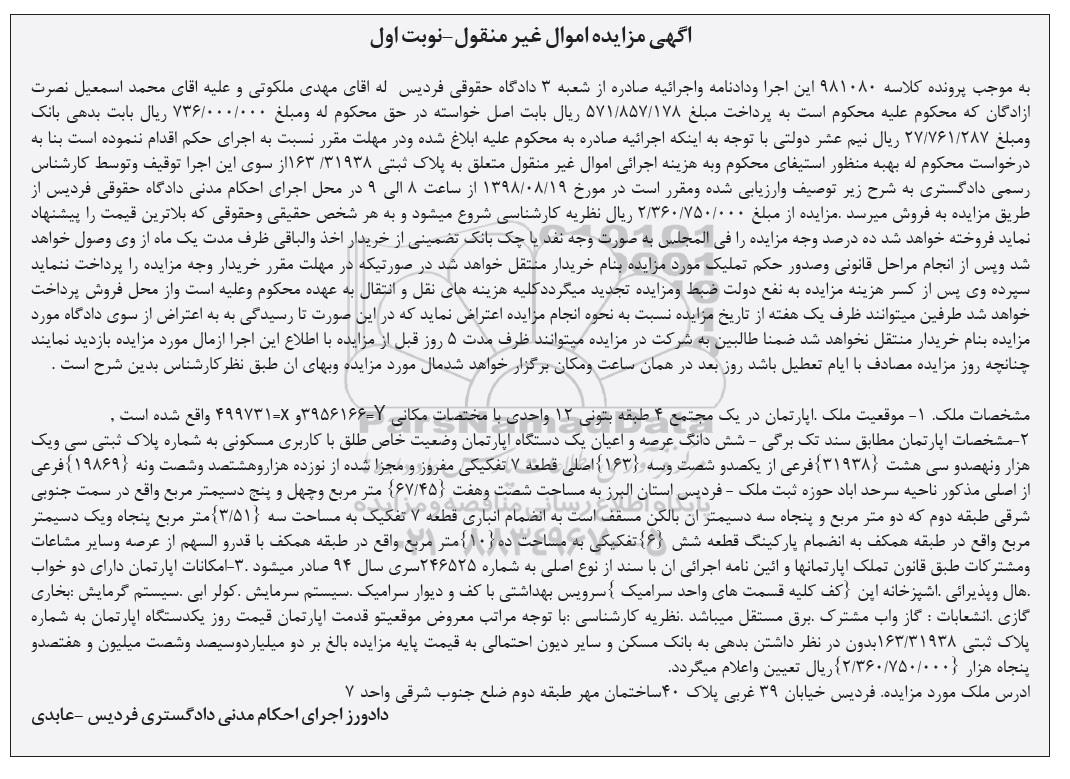 اگهی مزایده اموال غیر منقول-نوبت اول
به موجب پرونده کلاسه ۹۸۱۰۸۰ این اجرا ودادنامه واجرائیه صادره از شعبه ۳ دادگاه حقوقی فردیس له اقای مهدی ملکوتی و علیه اقای محمد اسمعیل نصرت
ازادگان که محکوم علیه محکوم است به پرداخت مبلغ ۵۷۱/۸۵۷/۱۷۸ ریال بابت اصل خواسته در حق محکوم له ومبلغ ۷۳۶/۰۰۰/۰۰۰ ریال بابت بدهی بانک
ومبلغ ۲۷/۷۶۱/۲۸۷ ریال نیم عشر دولتی با توجه به اینکه اجرائیه صادره به محکوم علیه ابلاغ شده ودر مهلت مقرر نسبت به اجرای حکم اقدام ننموده است بنا به
درخواست محکوم له بهبه منظور استیفای محکوم وبه هزینه اجرائی اموال غیر منقول متعلق به پلاک ثبتی ۳۱۹۳۸/ ۱۶۳از سوی این اجرا توقیف وتوسط کارشناس
رسمی دادگستری به شرح زیر توصیف وارزیابی شده ومقرر است در مورخ ۱۳۹۸/۰۸/۱۹ از ساعت ۸ الی ۹ در محل اجرای احکام مدنی دادگاه حقوقی فردیس از
طریق مزایده به فروش میرسد .مزایده از مبلغ ۲/۳۶۰/۷۵۰/۰۰۰ ریال نظریه کارشناسی شروع میشود و به هر شخص حقیقی وحقوقی که بلاترین قیمت را پیشنهاد
نماید فروخته خواهد شد ده درصد وجه مزایده را فی المجلس به صورت وجه نقد یا چک بانک تضمینی از خریدار اخذ والباقی ظرف مدت یک ماه از وی وصول خواهد
شد وپس از انجام مراحل قانونی وصدور حکم تملیک مورد مزایده بنام خریدار منتقل خواهد شد در صورتیکه در مهلت مقرر خریدار وجه مزایده را پرداخت ننماید
سپرده وی پس از کسر هزینه مزایده به نفع دولت ضبط ومزایده تجدید میگرددکلیه هزینه های نقل و انتقال به عهده محکوم وعلیه است واز محل فروش پرداخت
خواهد شد طرفین میتوانند ظرف یک هفته از تاریخ مزایده نسبت به نحوه انجام مزایده اعتراض نماید که در این صورت تا رسیدگی به به اعتراض از سوی دادگاه مورد
مزایده بنام خریدار منتقل نخواهد شد ضمنا طالبین به شرکت در مزایده میتوانند ظرف مدت ۵ روز قبل از مزایده با اطلاع این اجرا ازمال مورد مزایده بازدید نمایند
چنانچه روز مزایده مصادف با ایام تعطیل باشد روز بعد در همان ساعت ومکان برگزار خواهد شدمال مورد مزایده وبهای ان طبق نظرکارشناس بدین شرح است .
مشخصات ملک. ۱- موقعیت ملک .اپارتمان در یک مجتمع ۴ طبقه بتونی ۱۲ واحدی با مختصات مکانی Y=۳۹۵۶۱۶۶و x=۴۹۹۷۳۱ واقع شده است ,
۲-مشخصات اپارتمان مطابق سند تک برگی - شش دانگ عرصه و اعیان یک دستگاه اپارتمان وضعیت خاص طلق با کاربری مسکونی به شماره پلاک ثبتی سی ویک
هزار ونهصدو سی هشت {۳۱۹۳۸}فرعی از یکصدو شصت وسه {۱۶۳}اصلی قطعه ۷ تفکیکی مفروز و مجزا شده از نوزده هزاروهشتصد وشصت ونه {۱۹۸۶۹}فرعی
از اصلی مذکور ناحیه سرحد اباد حوزه ثبت ملک - فردیس استان البرز به مساحت شصت وهفت {۶۷/۴۵} متر مربع وچهل و پنج دسیمتر مربع واقع در سمت جنوبی
شرقی طبقه دوم که دو متر مربع و پنجاه سه دسیمتر ان بالکن مسقف است به انضمام انباری قطعه ۷ تفکیک به مساحت سه {۳/۵۱}متر مربع پنجاه ویک دسیمتر
مربع واقع در طبقه همکف به انضمام پارکینگ قطعه شش {۶}تفکیکی به مساحت ده{۱۰}متر مربع واقع در طبقه همکف با قدرو السهم از عرصه وسایر مشاعات
ومشترکات طبق قانون تملک اپارتمانها و ائین نامه اجرائی ان با سند از نوع اصلی به شماره ۲۴۶۵۲۵سری سال ۹۴ صادر میشود .۳-امکانات اپارتمان دارای دو خواب
.هال وپذیرائی .اشپزخانه اپن {کف کلیه قسمت های واحد سرامیک }سرویس بهداشتی با کف و دیوار سرامیک .سیستم سرمایش .کولر ابی .سیستم گرمایش :بخاری
گازی .انشعابات : گاز واب مشترک .برق مستقل میباشد .نظریه کارشناسی :با توجه مراتب معروض موقعیتو قدمت اپارتمان قیمت روز یکدستگاه اپارتمان به شماره
پلاک ثبتی ۱۶۳/۳۱۹۳۸بدون در نظر داشتن بدهی به بانک مسکن و سایر دیون احتمالی به قیمت پایه مزایده بالغ بر دو میلیاردوسیصد وشصت میلیون و هفتصدو
پنجاه هزار {۲/۳۶۰/۷۵۰/۰۰۰}ریال تعیین واعلام میگردد.
ادرس ملک مورد مزایده. فردیس خیابان ۳۹ غربی پلاک ۴۰ساختمان مهر طبقه دوم ضلع جنوب شرقی واحد ۷
دادورز اجرای احکام مدنی دادگستری فردیس -عابدی
ParsNamadData
پایگاه اطلاع رسانی مناقصه و مزایده
۰۲۱-۸۸۳۴۹۶۷۰-۵